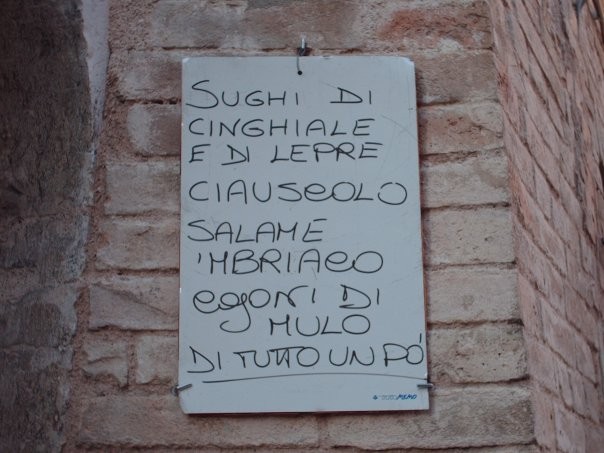 SUGHI DI
CINGHIALE
E DI LEPRE
CIAUSCOLO
SALAME
'MBRIACO
COJONI DI
MULO
DI TUTTO UN PÓ
MEMO